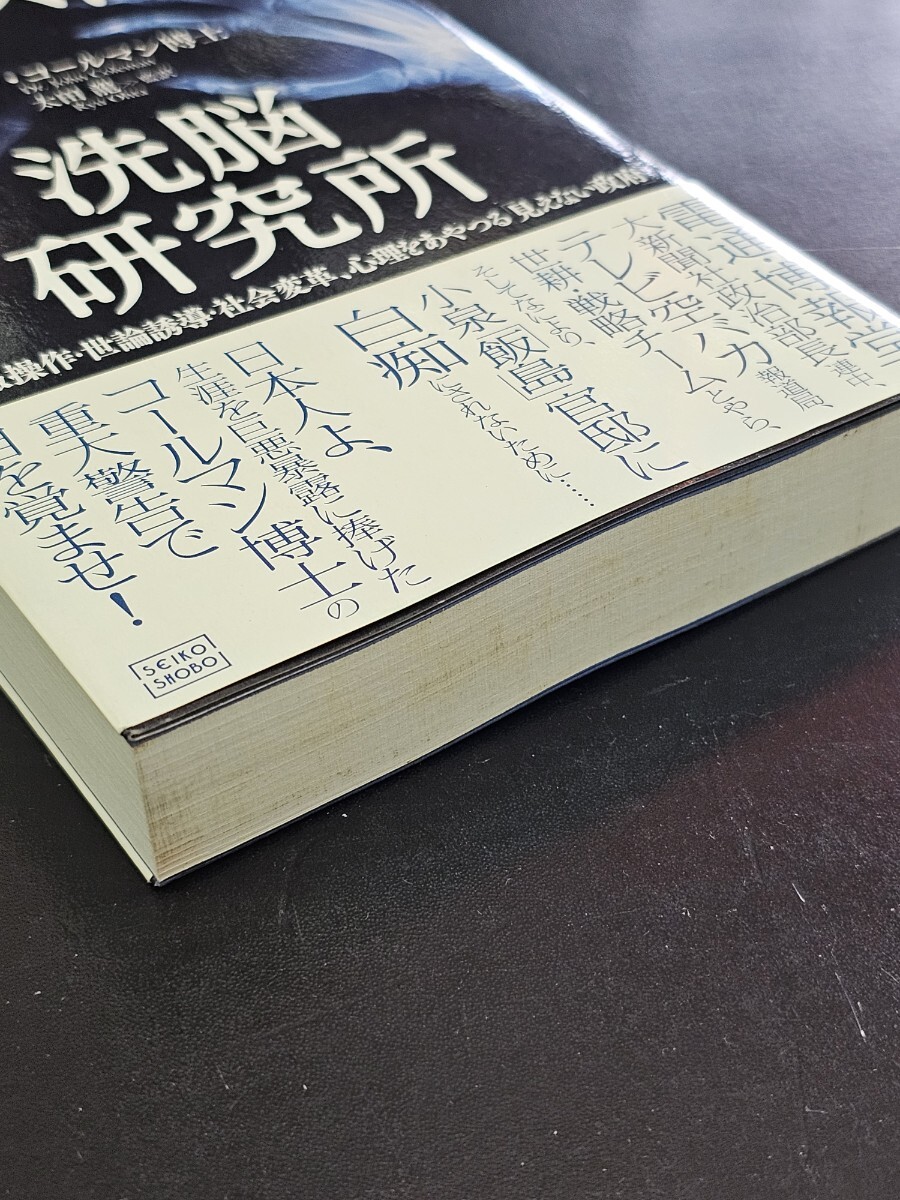 ・コールマン博士
Dr. John Coleman
太田 龍 監訳
Ryu Ohta
洗脳
研究所
操作・世論誘導・社会変革、心理をあやつる「見えない政府
電通・博報堂
大新聞社政治部長連中、
テレビ空バカ報道局、
世耕・戦略チームとやら、
そしてなにより、
小泉「飯島」官邸に
白痴にされないために……
日本人よ、
生涯を巨悪暴露に捧げた
コールマン博士の
重大警告で
目を覚ませ！
SEIKO
SHOBO